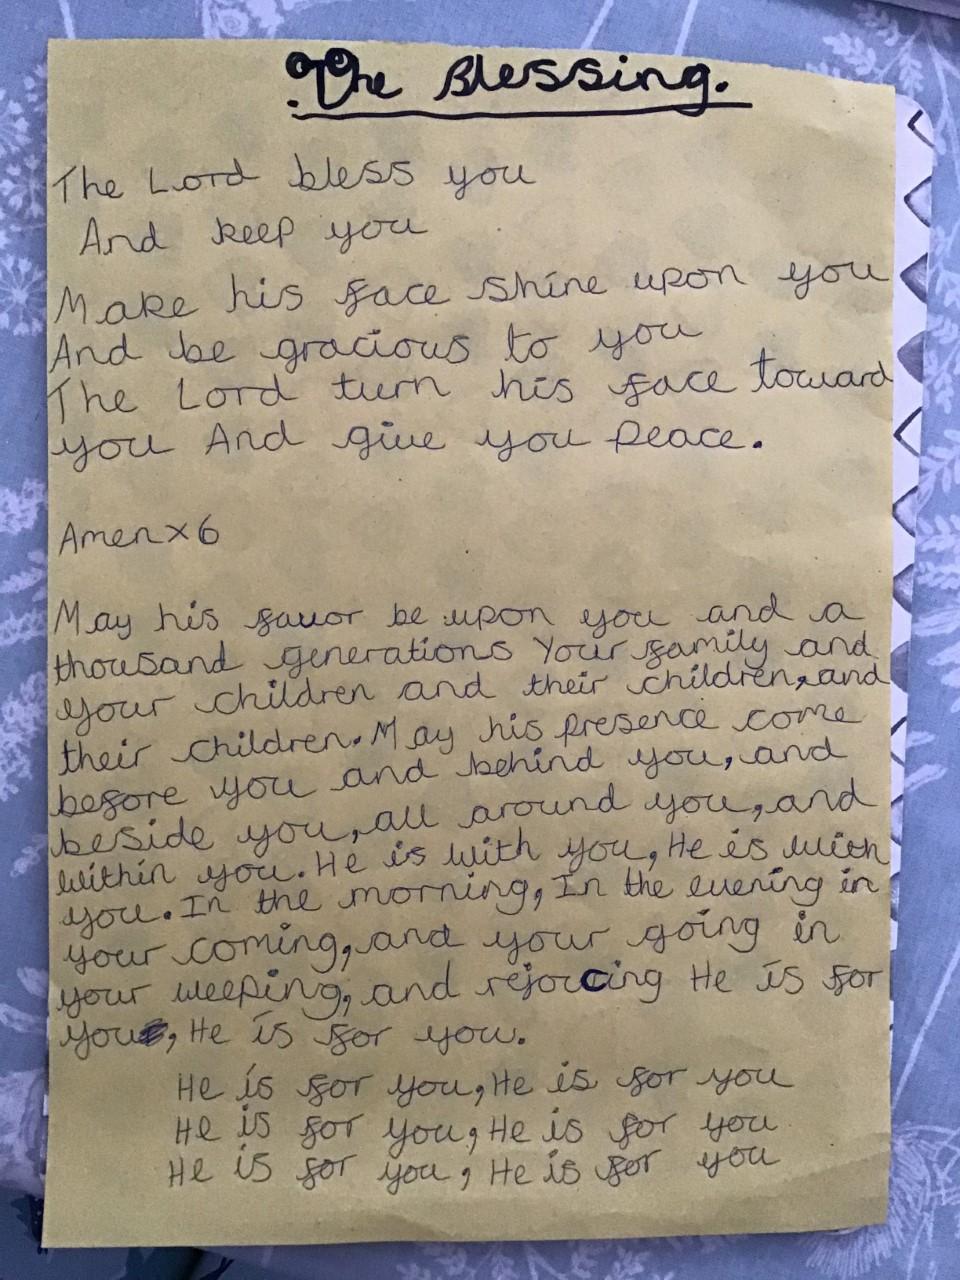 The Blessing.
The Lord bless you
And keep you
Make his face shine upon you
And be gracious to you
The Lord turn his face toward
you And give you peace.
Amen x 6
May his favor be upon you and a
thousand generations Your family and
your children and their children, and
their children. May his presence come
before you and behind you, and
beside you, all around you, and
within you. He is with you, He is with
you. In the morning, In the evening in
your coming, and your going in
your weeping, and rejoicing He is for
you, He is for you.
He is for you, He is for you
He is for you, He is for you
He is for you, He is for you